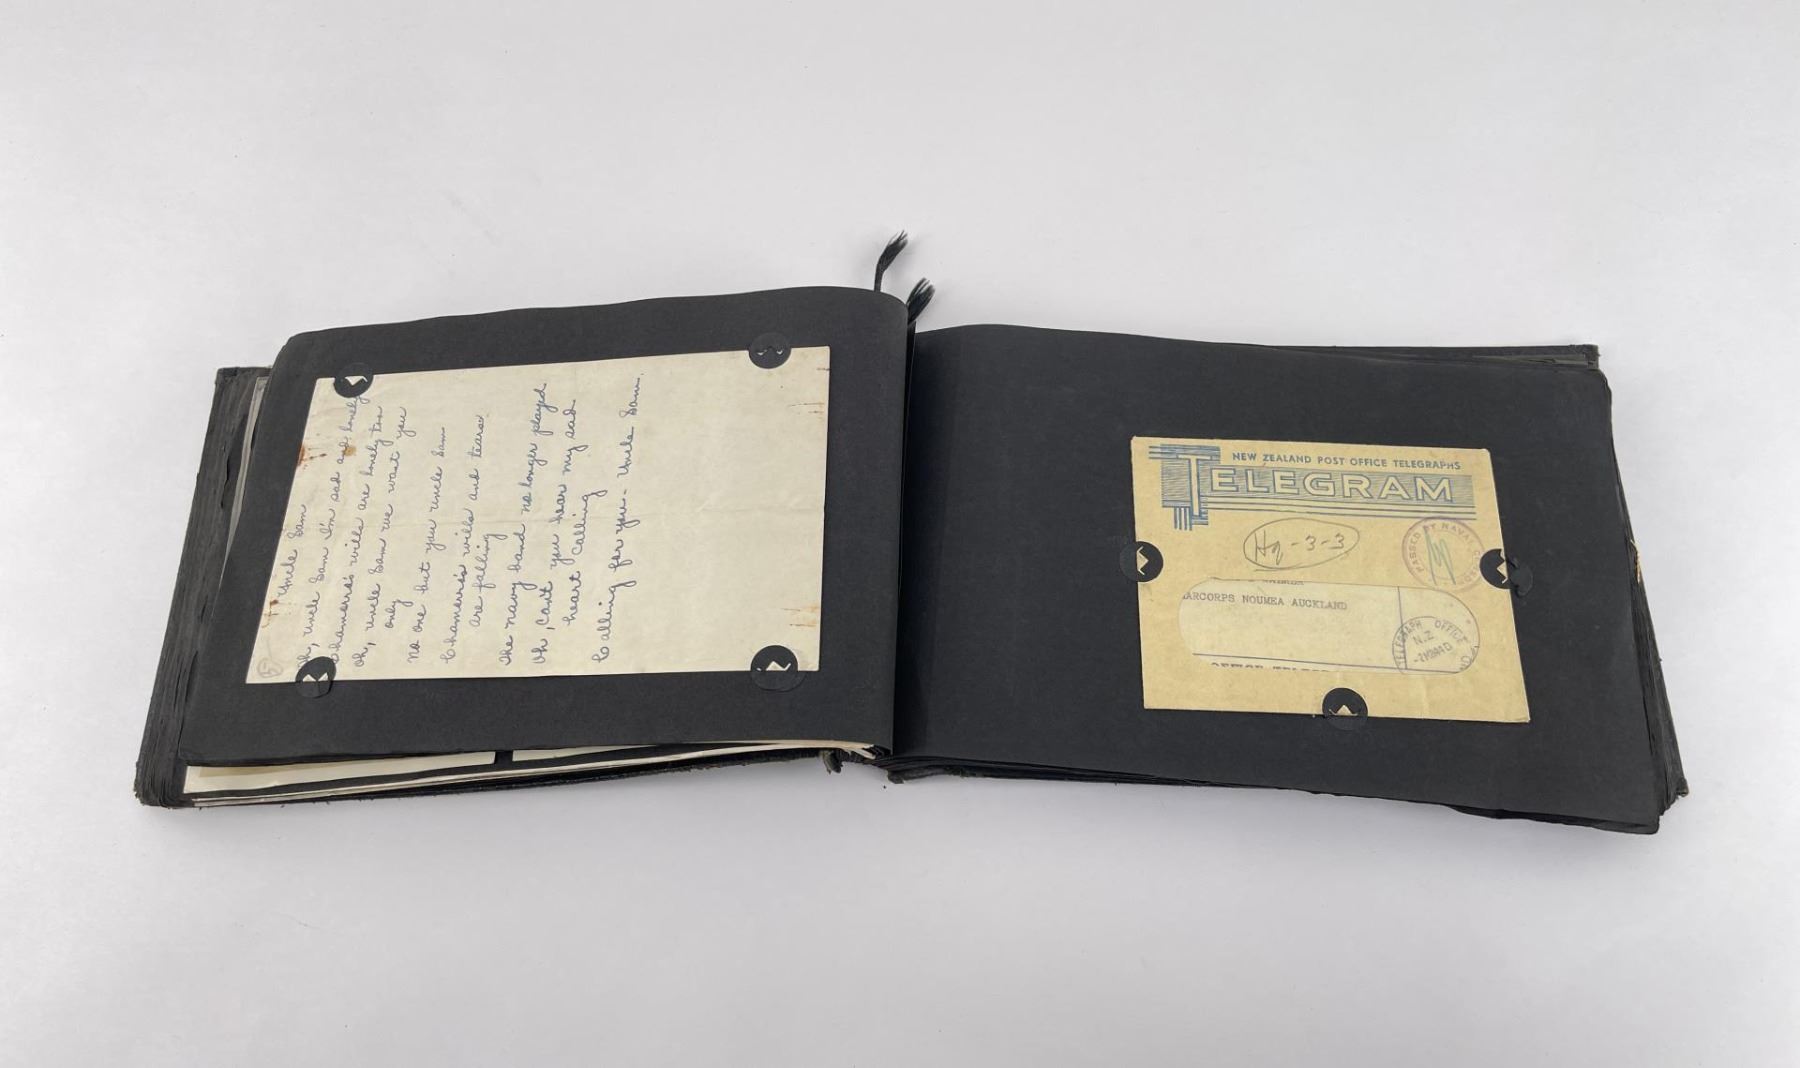 Uncle Sam
Oh, Uncle Sam I'm sad and lonely
Chamorro's wills are lonely too
Oh, Uncle Sam we want you
only
No one but you Uncle Sam
Chamorris wills and tears
are falling
The navy band no longer played
Oh, can't you hear my sad
heart calling
Calling for you - Uncle Sam.
NEW ZEALAND POST OFFICE TELEGRAPHS
TELEGRAM
-3-3
PASSED BY NAVAL
ARCORPS NOUMEA AUCKLAND
TELEGRAPH OFFICE
N.Z.